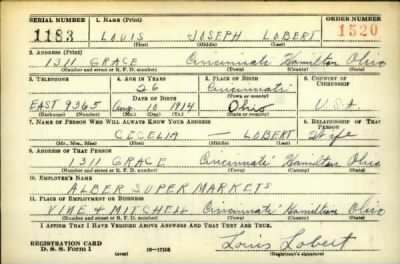 SERIAL NUMBER 1. NAME (Print) ORDER NUMBER
1183 LOUIS JOSEPH LOBERT 1520
(First) (Middle) (Last)
2. ADDRESS (Print)
1311 GRACE Cincinnati Hamilton Ohio
(Number and street or R. F. D. number) (Town) (County) (State)
3. TELEPHONE 4. AGE IN YEARS 5. PLACE OF BIRTH 6. COUNTRY OF CITIZENSHIP
26 Cincinnati
(Town or county)
DATE OF BIRTH
EAST 9365 Aug 10 1914 Ohio U.S.A
(Exchange) (Number) (Mo.) (Day) (Yr.) (State or country)
7. NAME OF PERSON WHO WILL ALWAYS KNOW YOUR ADDRESS 8. RELATIONSHIP OF THAT PERSON
CECELIA — LOBERT Wife
(Mr., Mrs., Miss) (First) (Middle) (Last)
9. ADDRESS OF THAT PERSON
1311 GRACE Cincinnati Hamilton Ohio
(Number and street or R. F. D. number) (Town) (County) (State)
10. EMPLOYER'S NAME
ALBER SUPER MARKETS
11. PLACE OF EMPLOYMENT OR BUSINESS
VINE & MITCHELL Cincinnati Hamilton Ohio
(Number and street or R. F. D. number) (Town) (County) (State)
I AFFIRM THAT I HAVE VERIFIED ABOVE ANSWERS AND THAT THEY ARE TRUE.
REGISTRATION CARD
D. S. S. Form 1 (over) 16—17105 Louis Lobert
(Registrant's signature)